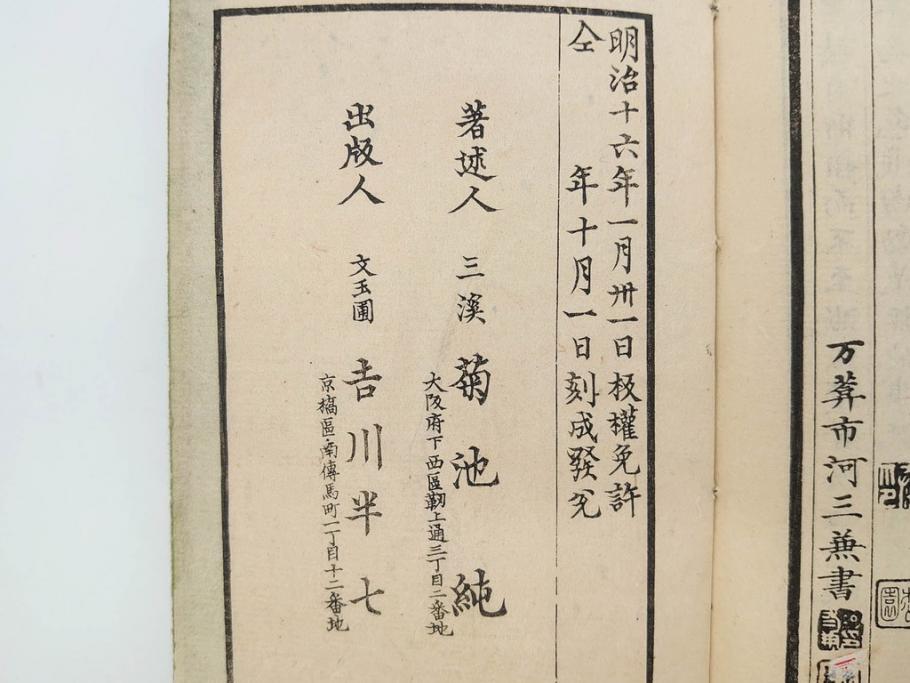 万葊市河三兼書
明治十六年一月卅一日板權免許
仝 年十月一日刻成發兌
著述人 三溪 菊池 純
大阪府下西區靱上通三丁目二番地
出版人 文玉圃 吉川半七
京橋區南傳馬町一丁目十二番地